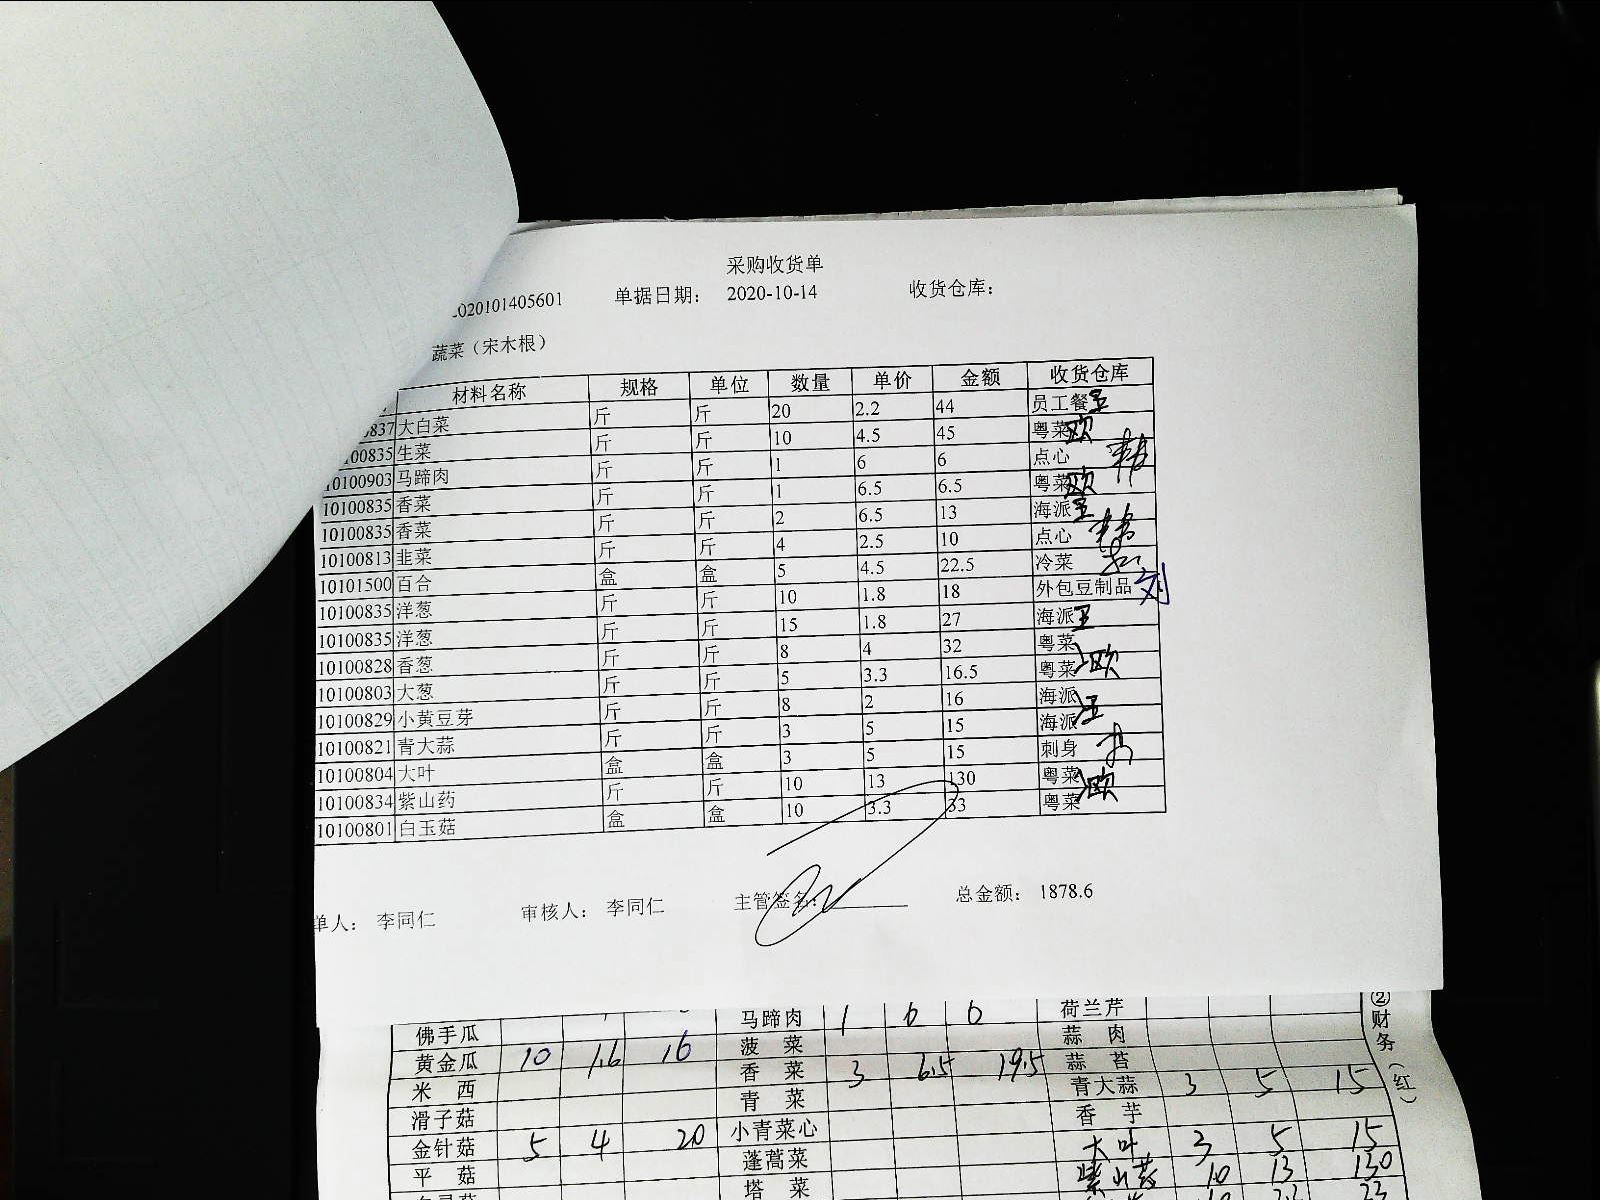 采购收货单
2020101405601 单据日期： 2020-10-14 收货仓库：
蔬菜（宋木根）
材料名称 规格 单位 数量 单价 金额 收货仓库
837 大白菜 斤 斤 20 2.2 44 员工餐 王
100835 生菜 斤 斤 10 4.5 45 粤菜 欧
10100903 马蹄肉 斤 斤 1 6 6 点心
10100835 香菜 斤 斤 1 6.5 6.5 粤菜 欧
10100835 香菜 斤 斤 2 6.5 13 海派 王
10100813 韭菜 斤 斤 4 2.5 10 点心
10101500 百合 盒 盒 5 4.5 22.5 冷菜
10100835 洋葱 斤 斤 10 1.8 18 外包豆制品 刘
10100835 洋葱 斤 斤 15 1.8 27 海派 王
10100828 香葱 斤 斤 8 4 32 粤菜
10100803 大葱 斤 斤 5 3.3 16.5 粤菜 欧
10100829 小黄豆芽 斤 斤 8 2 16 海派
10100821 青大蒜 斤 斤 3 5 15 海派 王
10100804 大叶 盒 盒 3 5 15 刺身
10100834 紫山药 斤 斤 10 13 130 粤菜
10100801 白玉菇 盒 盒 10 3.3 33 粤菜 欧
单人： 李同仁 审核人： 李同仁 主管签名： 总金额： 1878.6
佛手瓜 马蹄肉 1 6 6 荷兰芹
黄金瓜 10 1.6 16 菠菜 蒜肉
米西 香菜 3 6.5 19.5 蒜苔
滑子菇 青菜 青大蒜 3 5 15
金针菇 5 4 20 小青菜心 香芋
平菇 蓬蒿菜 大叶 3 5 15
塔菜 紫山药 10 13 130
②财务（红）